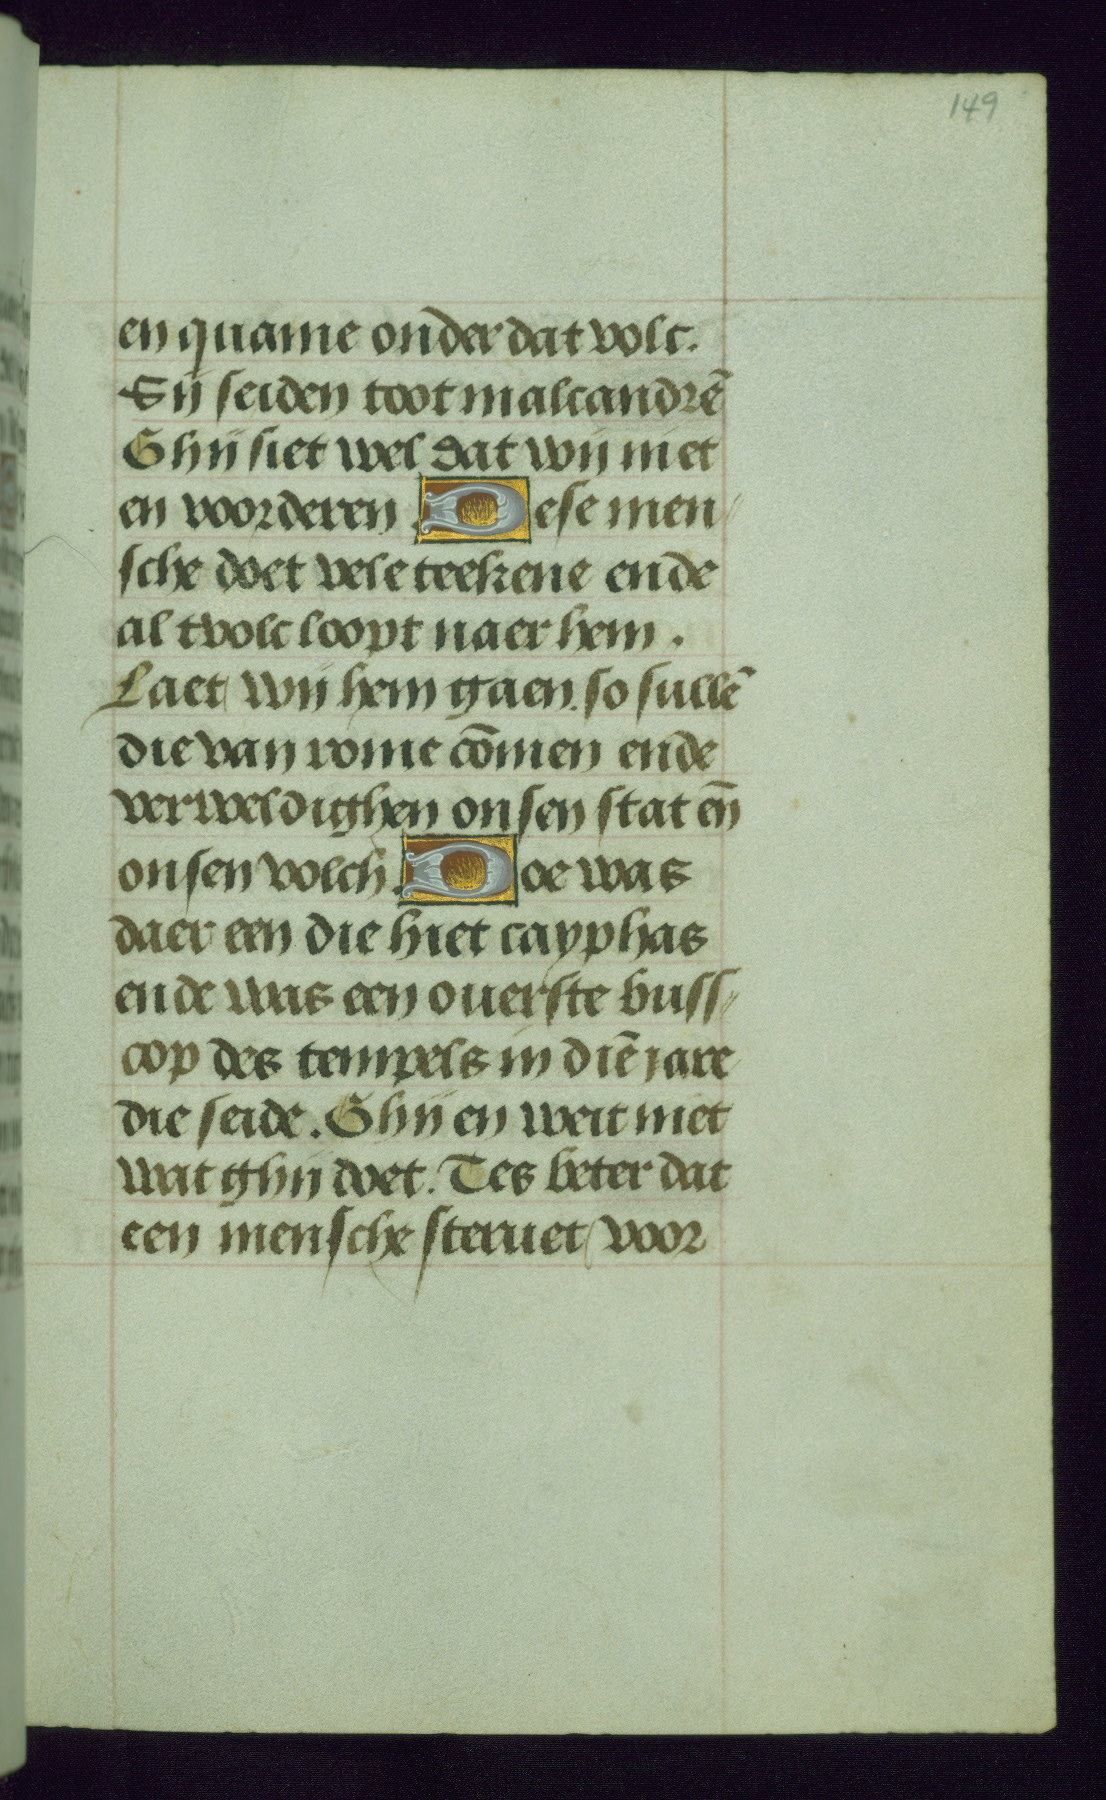 149
en quame onder dat volc.
Sij seiden toot malcandrē
Ghij siet wel dat wij niet
en vorderen. Dese men
sche doet vele teekene ende
al tvolc loopt naer hem.
Laet wij hem gaen. so sullē
die van rome cōmen ende
verweldighen onsen stat eñ
onsen volch. Doe was
daer een die hiet cayphas
ende was een ouerste buss
cop des tempels in diē jare
die seide. Ghij en weit niet
wat ghij doet. Tes beter dat
een mensche steruet voor